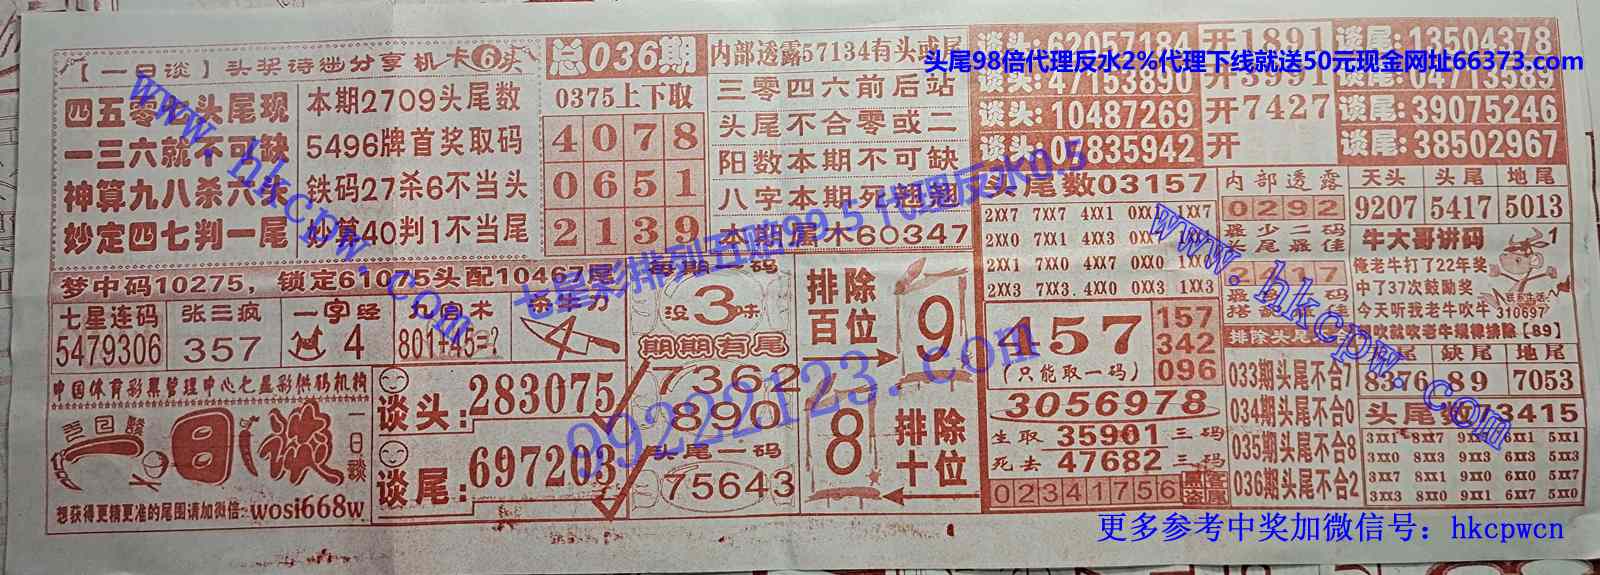 【一日谈】头奖诗谜分享机卡6头
四五零七头尾现
一三六就不可缺
神算九八杀六头
妙定四七判一尾
本期2709头尾数
5496牌首奖取码
铁码27杀6不当头
妙算40判1不当尾
总036期
0375上下取
4078
0651
2139
内部透露57134有头或尾
三零四六前后站
头尾不合零或二
阳数本期不可缺
八字本期死翘翘
本期属木60347
谈头:62057184 开1891 谈尾:13504378
头尾98倍代理反水2%代理下线就送50元现金网址66373.com
谈头:47153890 开3991 谈尾:04713589
谈头:10487269 开7427 谈尾:39075246
谈头:07835942 开 谈尾:38502967
头尾数03157
2XX7 7XX7 4XX1 0XX1 1XX7
2XX0 7XX1 4XX3 0XX7
2XX1 7XX0 4XX7 0XX0 1XX0
2XX3 7XX3 4XX0 0XX3 1XX3
内部透露
0292
最少二码
头尾最佳
3417
天头 头尾 地尾
9207 5417 5013
牛大哥讲码
俺老牛打了22年奖
中了37次鼓励奖
今天听我老牛吹牛
310697
吹就吹老牛规律排除【89】
梦中码10275，锁定61075头配10467尾
七星连码
5479306
张三疯
357
一字经
4
九宫术
801+45=?
杀牛刀
每期一码
没3味
期期有尾
排除
百位
9
8
排除
十位
457
(只能取一码)
157
342
096
3056978
生取 35901 三码
死去 47682 三码
02341756
排除头尾
033期头尾不合7
034期头尾不合0
035期头尾不合8
036期头尾不合2
缺尾 地尾
8376 89 7053
头尾数13415
3XX1 8XX7 9XX 6XX1 5XX1
3XX0 8XX3 9XX 6XX3 5XX3
3XX7 8XX1 9XX7 6XX0 5XX7
3XX3 8XX0 9XX1 6XX7 5XX0
中国体育彩票管理中心七星彩供码机构
一日谈
一日谈
想获得更精更准的尾图请加微信:wosi668w
谈头:283075
谈尾:697203
7362
890
头尾一码
75643
www.hkcpw.com
七星彩排列五赔99.5 代理反水0.5
09222123.com
www.hkcpw.com
更多参考中奖加微信号：hkcpwcn